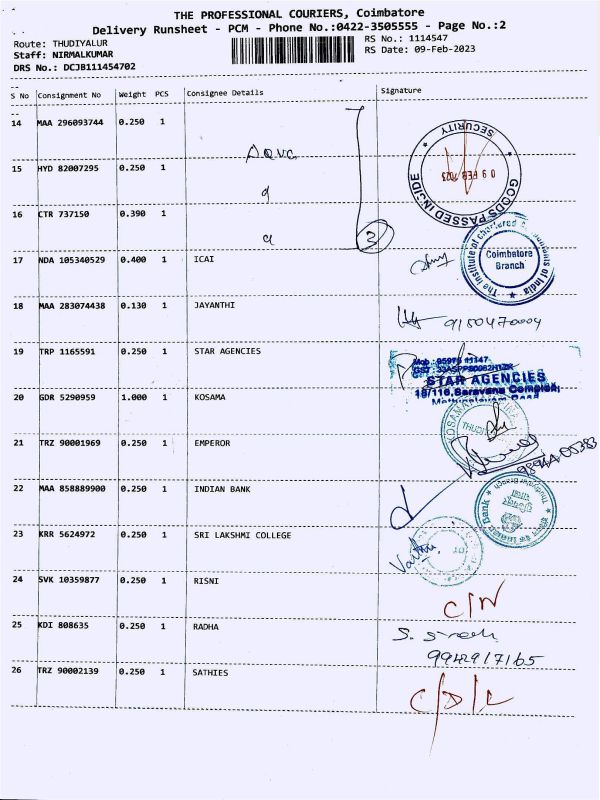 THE PROFESSIONAL COURIERS, Coimbatore
Delivery Runsheet - PCM - Phone No.:0422-3505555 - Page No.:2
Route: THUDIYALUR
RS No.: 1114547
Staff: NIRMALKUMAR
RS Date: 09-Feb-2023
DRS No.: DCJB111454702
S No Consignment No Weight PCS Consignee Details Signature
14 MAA 296093744 0.250 1
15 HYD 82007295 0.250 1
16 CTR 737150 0.390 1
3
SECURITY
09 FEB 2023
GOODS PASSED INSIDE
17 NDA 105340529 0.400 1 ICAI
The Institute of Chartered Accountants of India
Coimbatore
Branch
18 MAA 283074438 0.130 1 JAYANTHI
9150470004
19 TRP 1165591 0.250 1 STAR AGENCIES
STAR AGENCIES
18/116, Saravana Complex,
20 GDR 5290959 1.000 1 KOSAMA
21 TRZ 90001969 0.250 1 EMPEROR
22 MAA 858889900 0.250 1 INDIAN BANK
23 KRR 5624972 0.250 1 SRI LAKSHMI COLLEGE
24 SVK 10359877 0.250 1 RISNI
C/N
25 KDI 808635 0.250 1 RADHA
26 TRZ 90002139 0.250 1 SATHIES
C/D/L